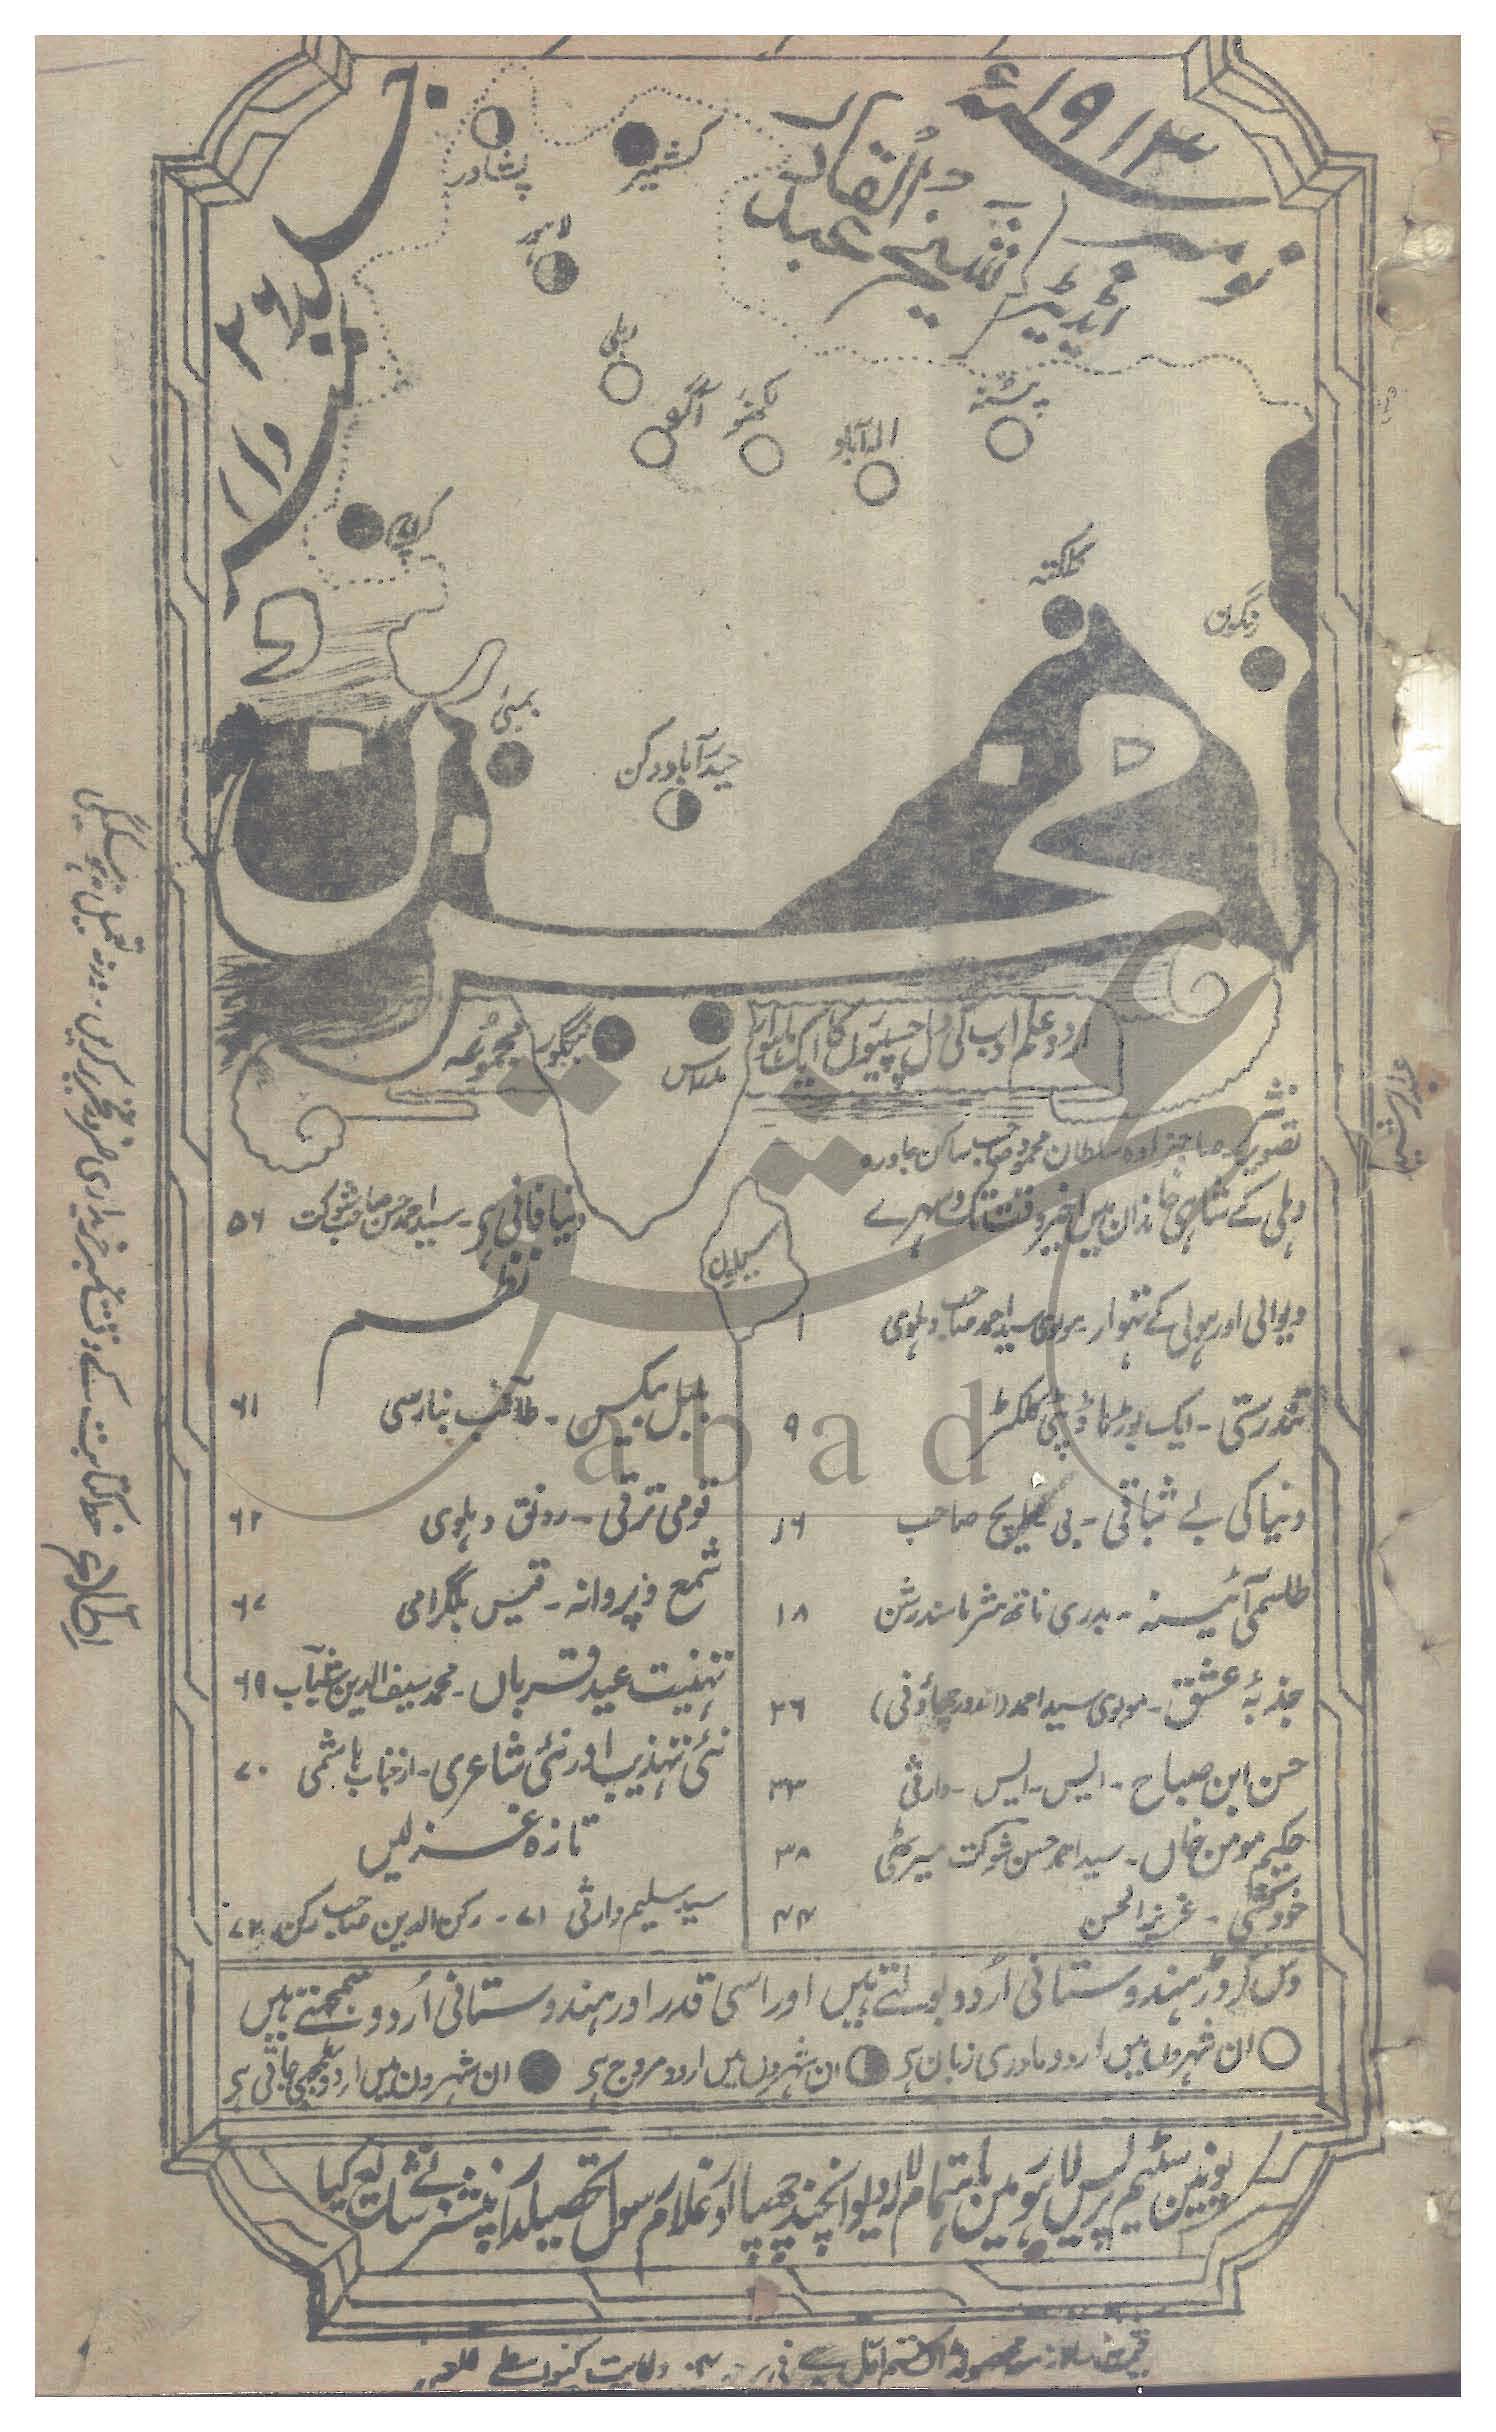 نومبر ۱۹۱۳ء
ایڈیٹر شیخ عبدالقادر
جلد ۲۶
نمبر ۲
پشاور
کشمیر
لاہور
دہلی
آگرہ
لکھنؤ
الہ آباد
پٹنہ
کراچی
کلکتہ
رنگون
بمبئی
حیدرآباد دکن
مخزن
اردو علم ادب کی دلچسپیوں کا ایک ماہوار
مجموعہ
بنگلور
مدراس
سیلون
نثر
تصویر صاحبزادہ سلطان محمود صاحب ساکن جاورہ
دہلی کے شاہی خاندان میں اخیر وقت تک دسہرے
دیوالی اور ہولی کے تہوار - مولوی سید احمد صاحب دہلوی ۱
تندرستی - ایک بوڑھا ڈپٹی کلکٹر ۹
دنیا کی بے ثباتی - بی صاحب ۱۶
طلسمی آئینہ - بدری ناتھ شرما سدرشن ۱۸
جذبۂ عشق - مولوی سید احمد (اندور چھاؤنی) ۲۶
حسن ابن صباح - ایس - ایس - وارثی ۳۳
حکیم مومن خاں - سید احمد حسن شوکت میرٹھی ۳۸
خودکشی - عزیز الحسن ۴۴
دنیا فانی ہے - سید احمد حسن صاحب شوکت ۵۶
نظم
بلبل بیکس - طالب بنارسی ۶۱
قومی ترقی - رونق دہلوی ۶۲
شمع و پروانہ - قیس بلگرامی ۶۷
تہنیت عید قرباں - محمد سیف الدین شباب ۶۹
نئی تہذیب اور نئی شاعری - از جناب ہاشمی ۷۰
تازہ غزلیں
سید سلیم وارثی ۷۱ - رکن الدین صاحب رکن ۷۲
دس کروڑ ہندوستانی اُردو بولتے ہیں اور اسی قدر اور ہندوستانی اُردو سمجھتے ہیں
ان شہروں میں اردو مادری زبان ہے ان شہروں میں اردو مروج ہے ان شہروں میں اردو سمجھی جاتی ہے
یونین سٹیم پریس لاہور میں باہتمام لالہ دیوانچند چھپا اور غلام رسول تحصیلدار پنشنر نے شایع کیا
قیمت سالانہ مع محصول ڈاک قسم اول
اطلاع خط کتابت کے وقت نمبر خریداری ضرور تحریر کریں - ورنہ تعمیل نہ ہو سکیگی
abad